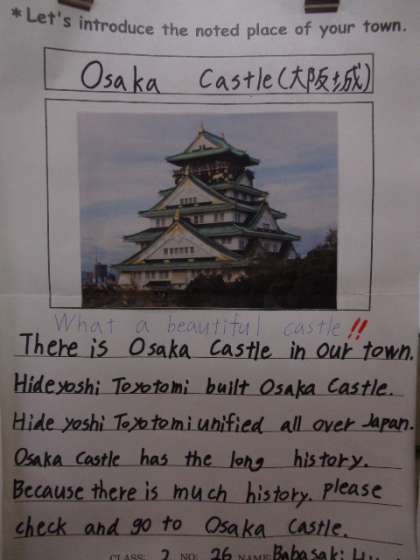 *Let's introduce the noted place of your town.
Osaka Castle(大阪城)
What a beautiful castle!!
There is Osaka Castle in our town.
Hideyoshi Toyotomi built Osaka Castle.
Hideyoshi Toyotomi unified all over Japan.
Osaka Castle has the long history.
Because there is much history. please
check and go to Osaka Castle.
CLASS: 2 NO: 26 NAME: Babasaki